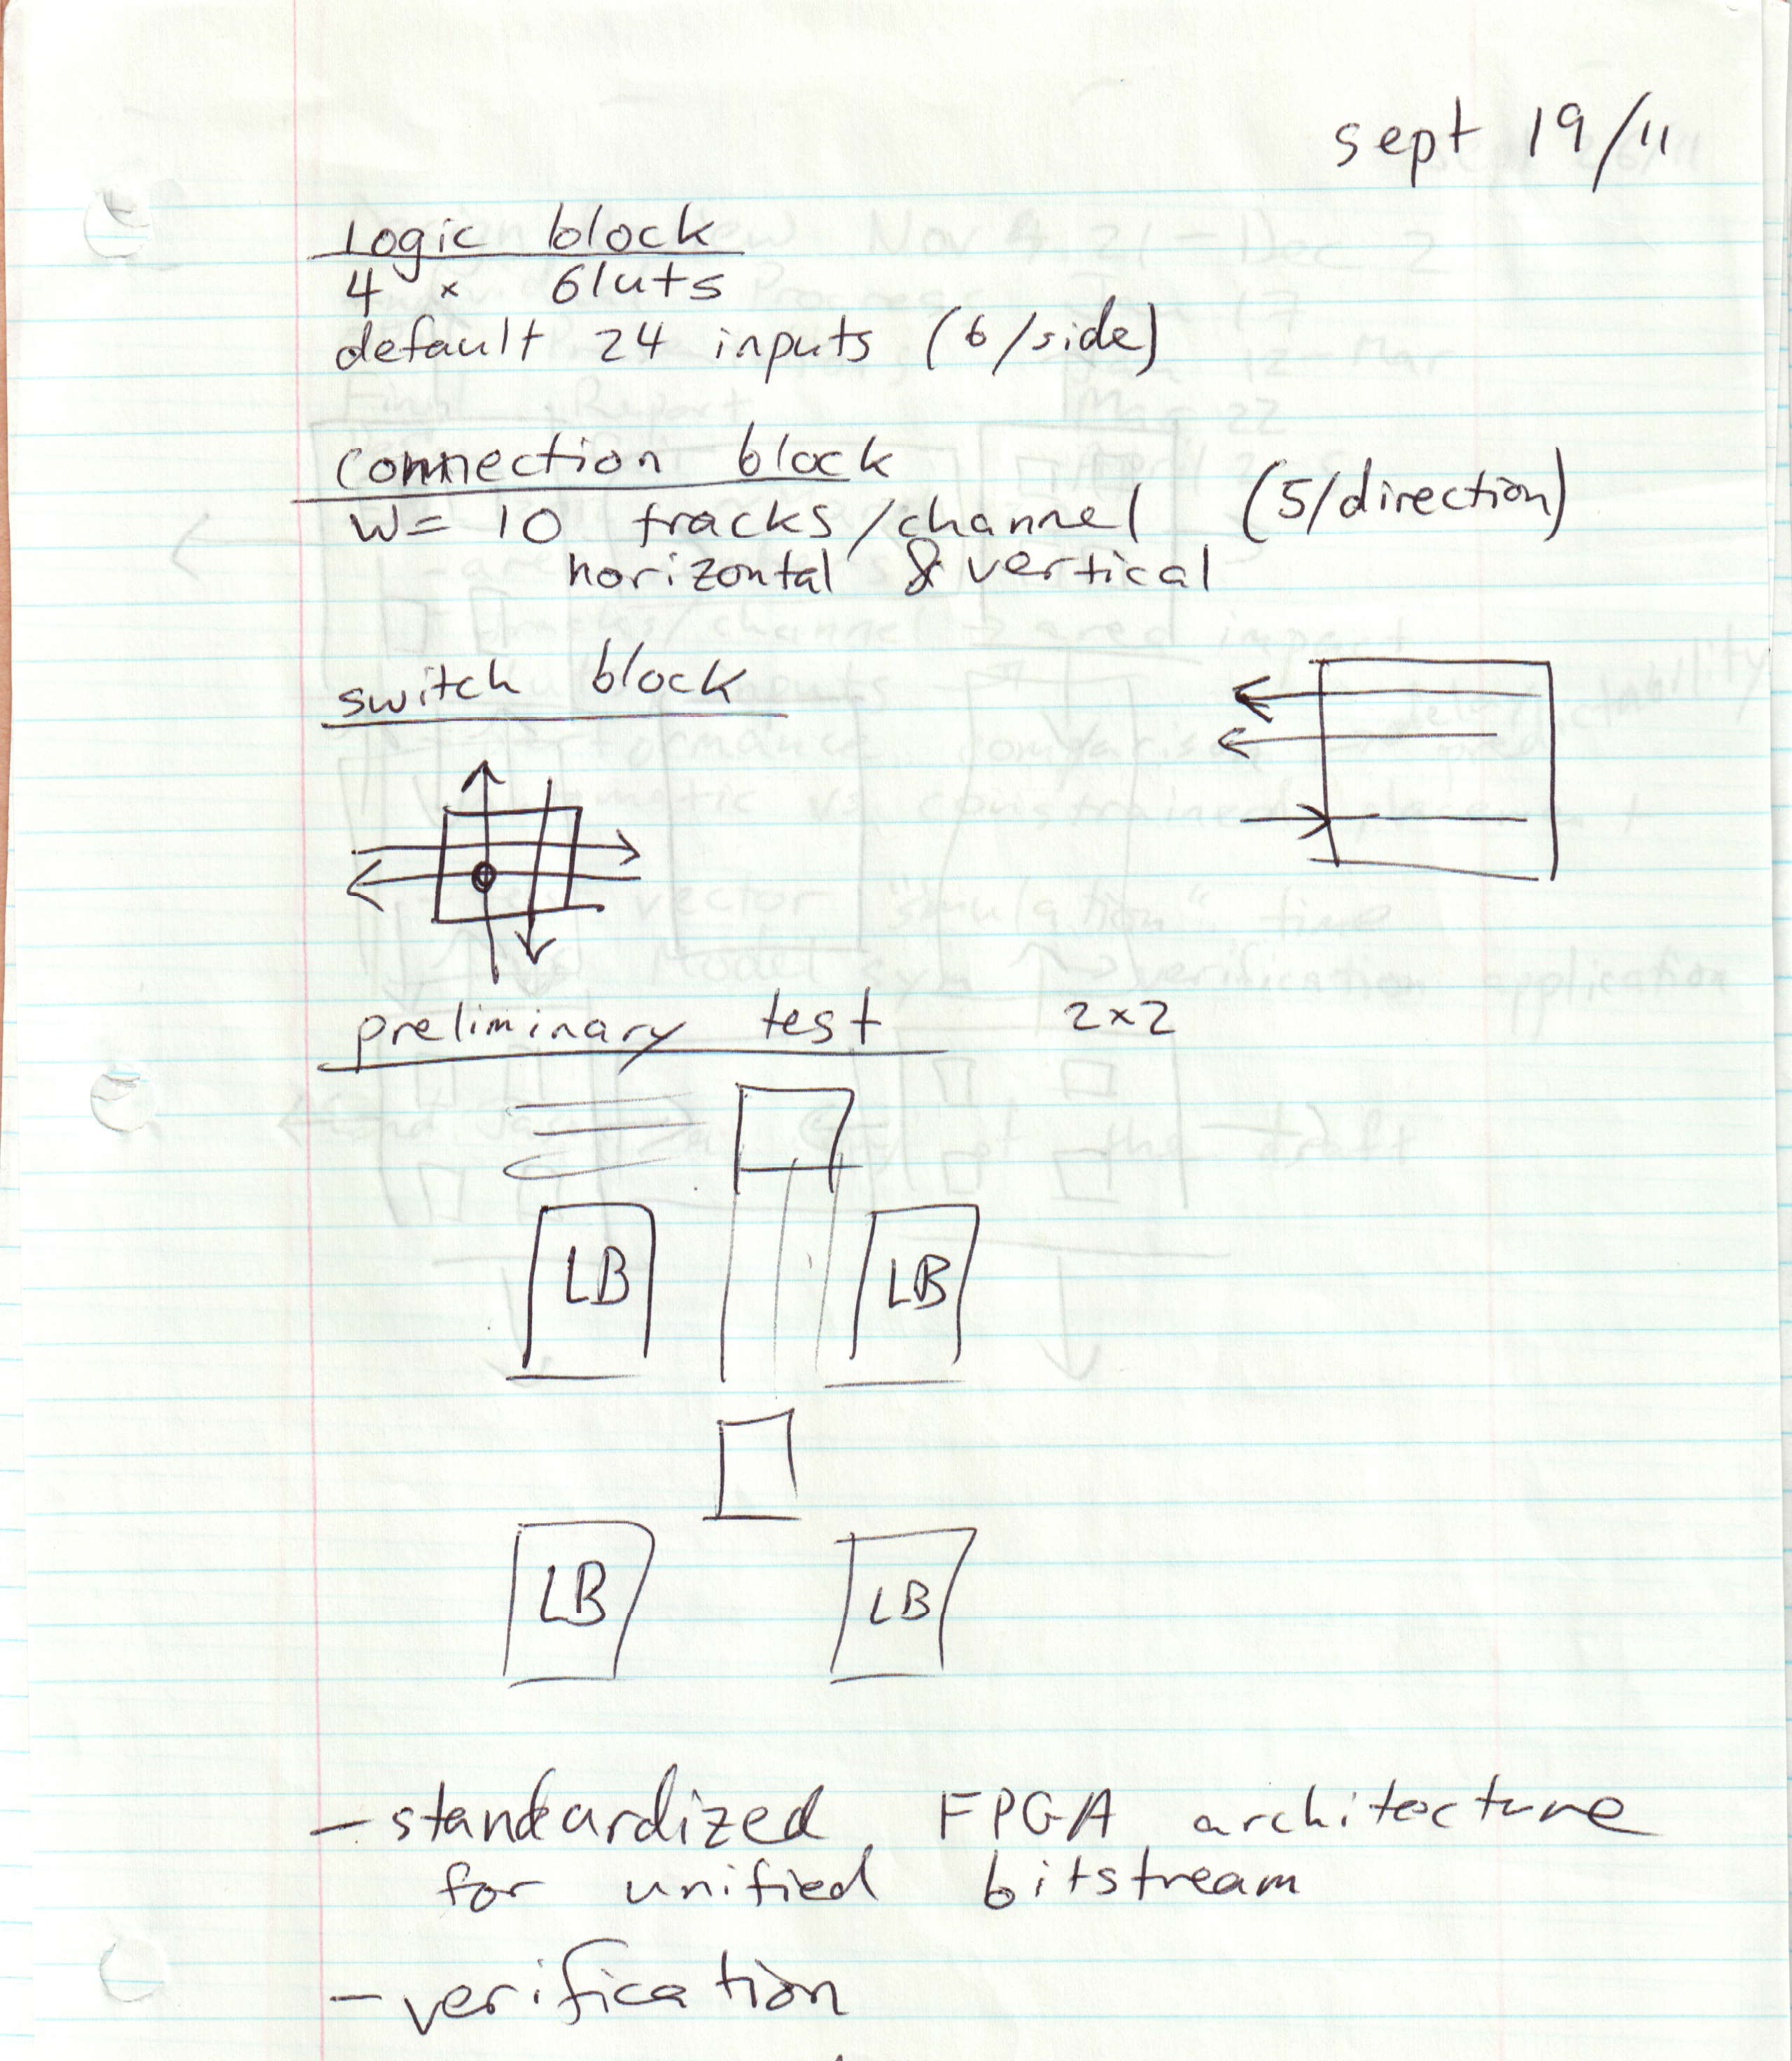 sept 19/11
Logic block
4 x 6luts
default 24 inputs (6/side)
connection block
W= 10 tracks/channel (5/direction)
horizontal & vertical
switch block
preliminary test 2x2
LB LB
LB LB
- standardized FPGA architecture
for unified bitstream
- verification